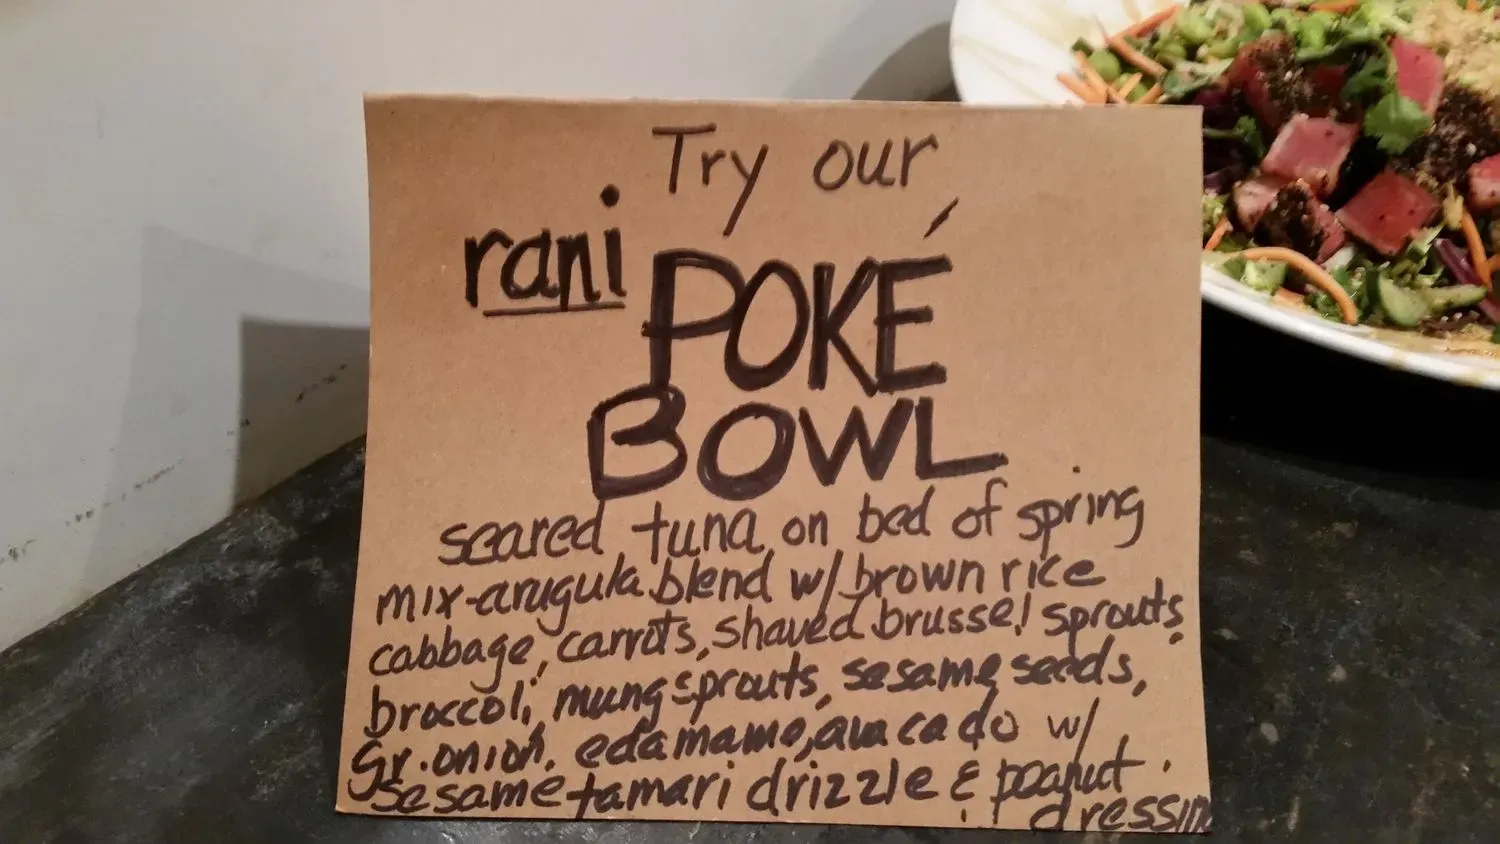 Try our
rani POKÉ
BOWL
seared tuna on bed of spring
mix-arugula blend w/ brown rice
cabbage, carrots, shaved brussel sprouts,
broccoli, mung sprouts, sesame seeds,
Gr. onion, edamame, avacado w/
sesame tamari drizzle & peanut
dressing